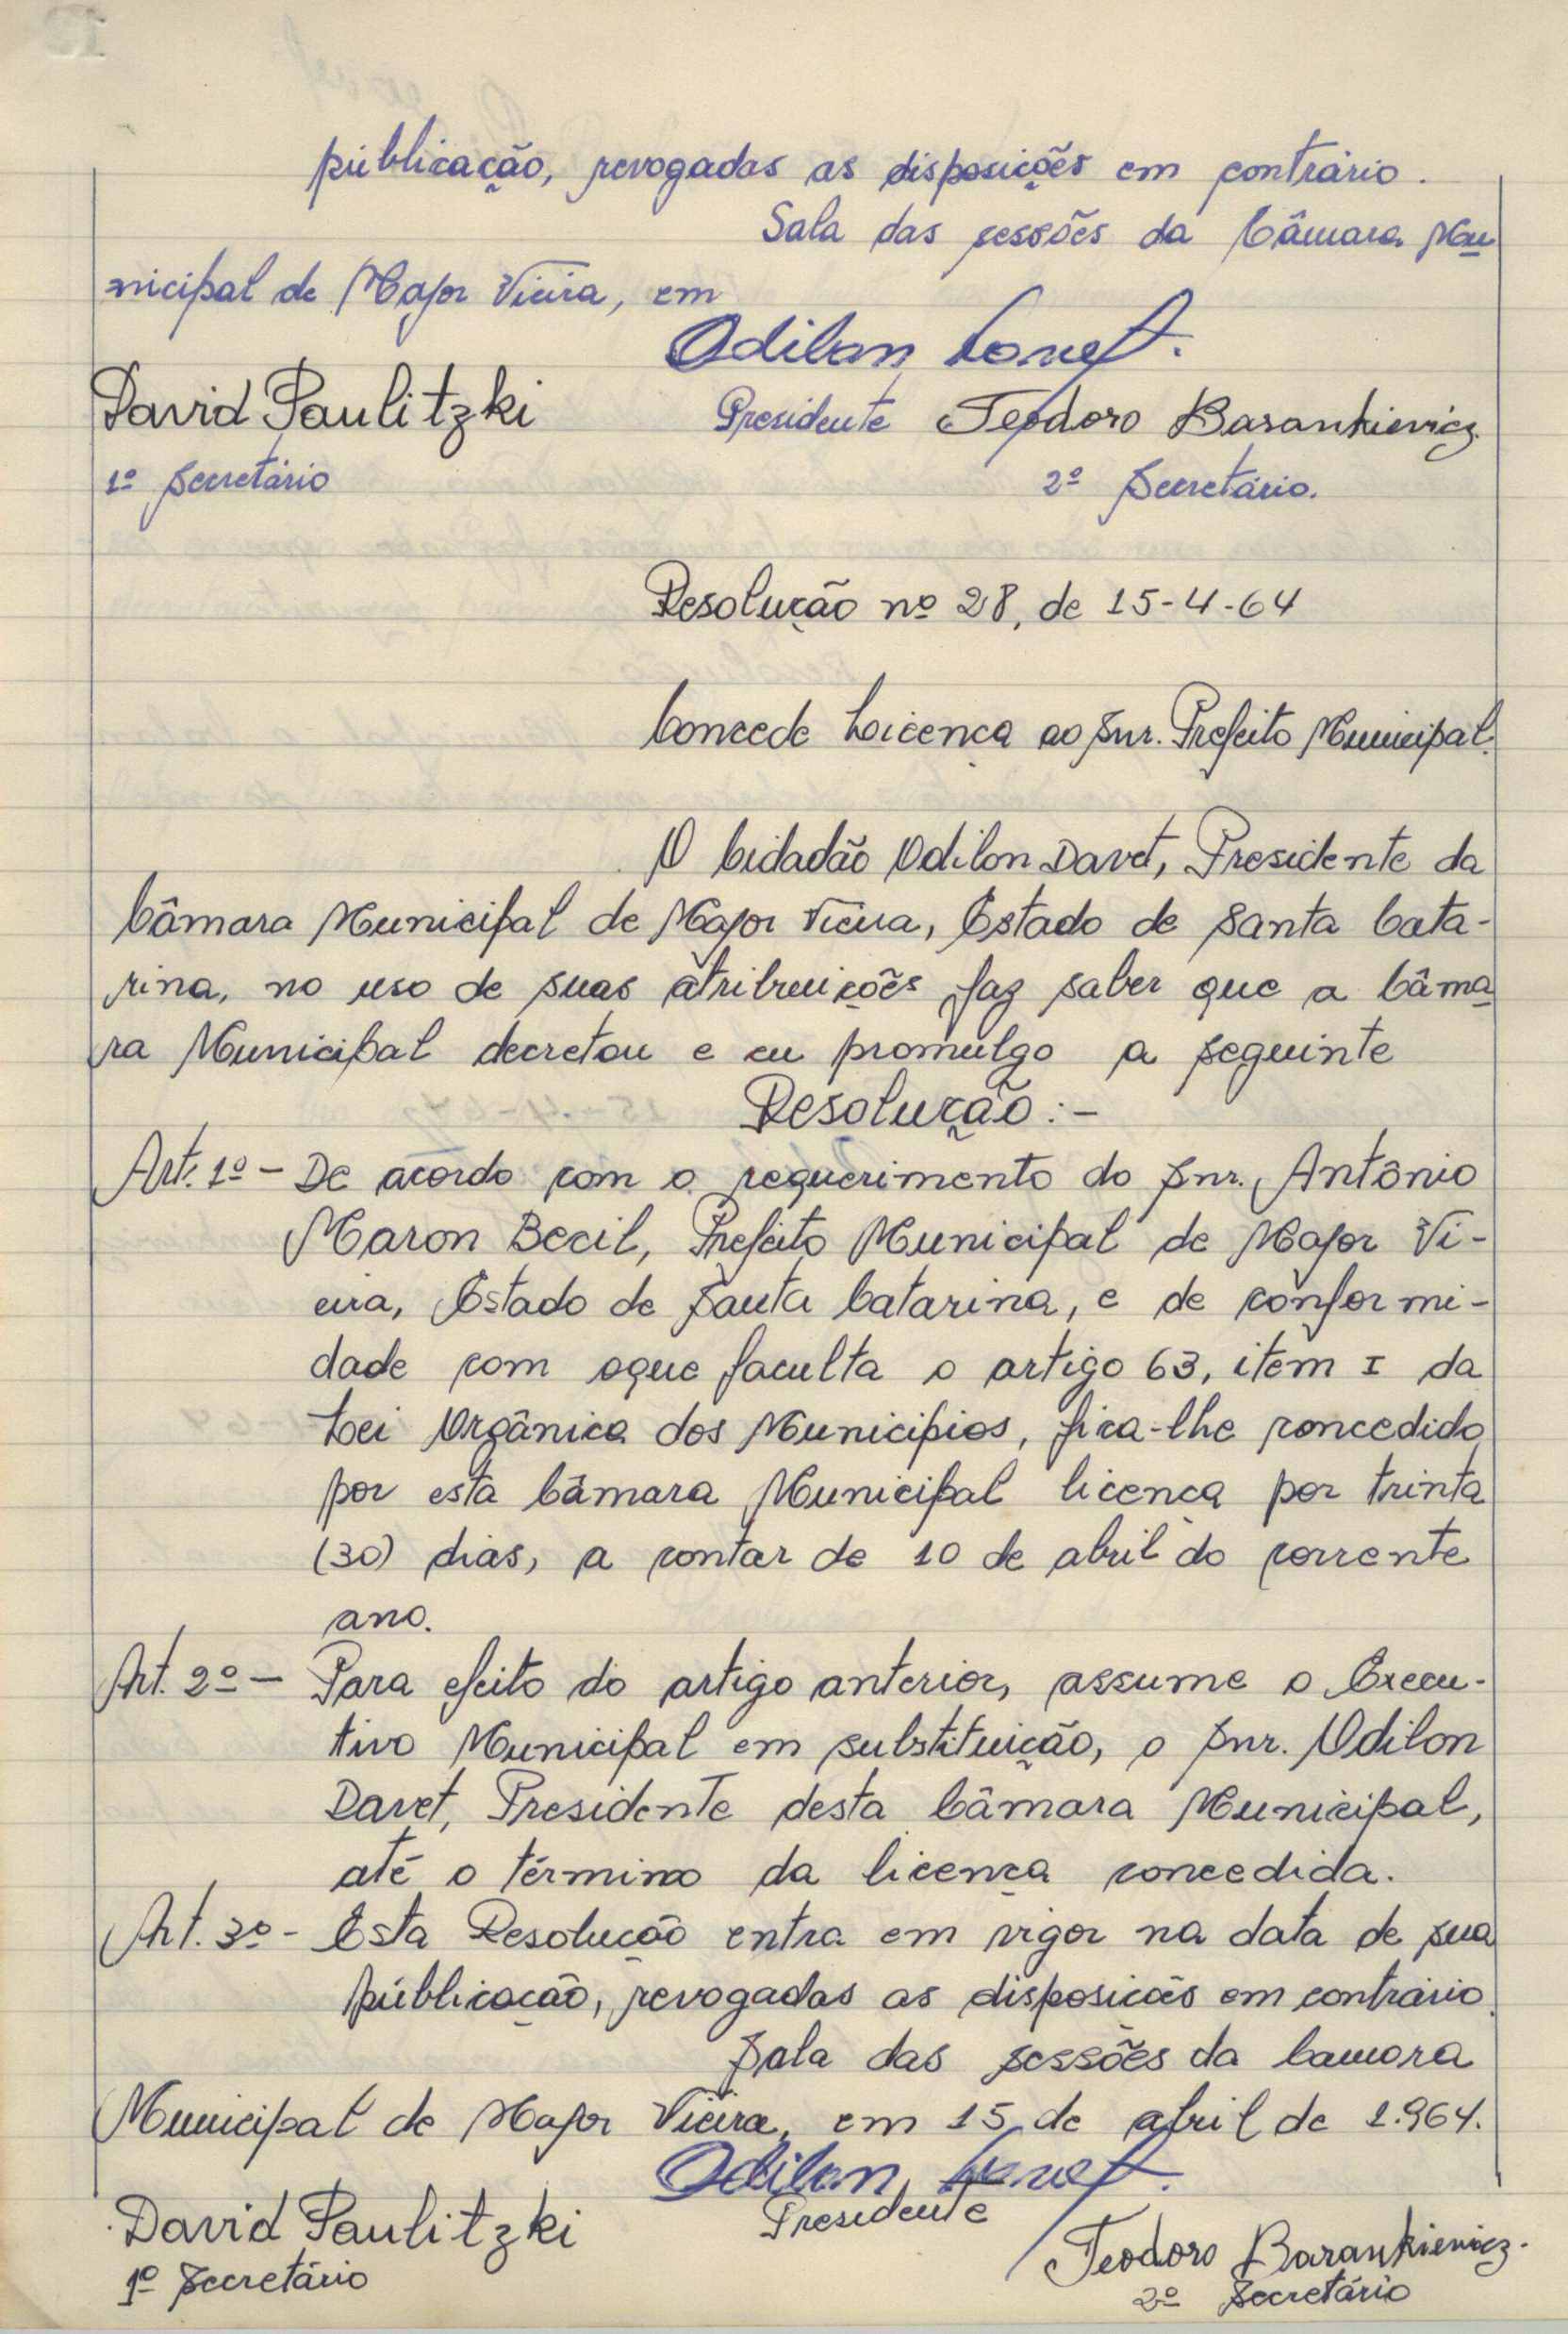 públicação, revogadas as disposições em contrário.
Sala das sessões da Câmara Mu
nicipal de Major Vieira, em
Odilon Davet.
David Paulitzki
Presidente Teodoro Barankievicz.
1º Secretário
2º Secretário.
Resolução nº 28, de 15-4-64
Concede Licença ao Snr. Prefeito Municipal.
O Cidadão Odilon Davet, Presidente da
Câmara Municipal de Major Vieira, Estado de Santa Cata-
rina, no uso de suas atribuições faz saber que a Câma
ra Municipal decretou e eu promulgo a seguinte
Resolução:-
Art. 1º - De acordo com o requerimento do Snr. Antônio
Maron Becil, Prefeito Municipal de Major Vi-
eira, Estado de Santa Catarina, e de conformi-
dade com oque faculta o artigo 63, item I da
Lei Orgânica dos Municipios, fica-lhe concedido
por esta Câmara Municipal licença por trinta
(30) dias, a contar de 10 de abril do corrente
ano.
Art. 2º - Para efeito do artigo anterior, assume o Execu-
tivo Municipal em substituição, o Snr. Odilon
Davet, Presidente desta Câmara Municipal,
até o término da licença concedida.
Art. 3º - Esta Resolução entra em vigor na data de sua
públicação, revogadas as disposições em contrário.
Sala das sessões da Camara
Municipal de Major Vieira, em 15 de abril de 1.964.
Odilon Davet.
Presidente
David Paulitzki
1º Secretário
Teodoro Barankievicz.
2º Secretário